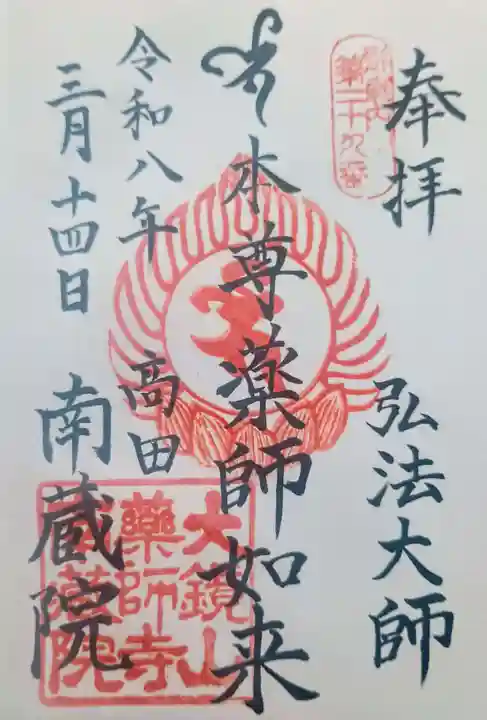 奉拝
弘法大師
本尊薬師如来
令和八年
三月十四日
高田
南蔵院
第二十九番
大鏡山
薬師寺
南蔵院